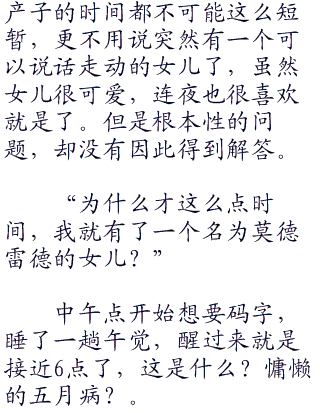 产子的时间都不可能这么短
暂，更不用说突然有一个可
以说话走动的女儿了，虽然
女儿很可爱，连夜也很喜欢
就是了。但是根本性的问
题，却没有因此得到解答。
“为什么才这么点时
间，我就有了一个名为莫德
雷德的女儿？”
中午点开始想要码字，
睡了一趟午觉，醒过来就是
接近6点了，这是什么？慵懒
的五月病？。